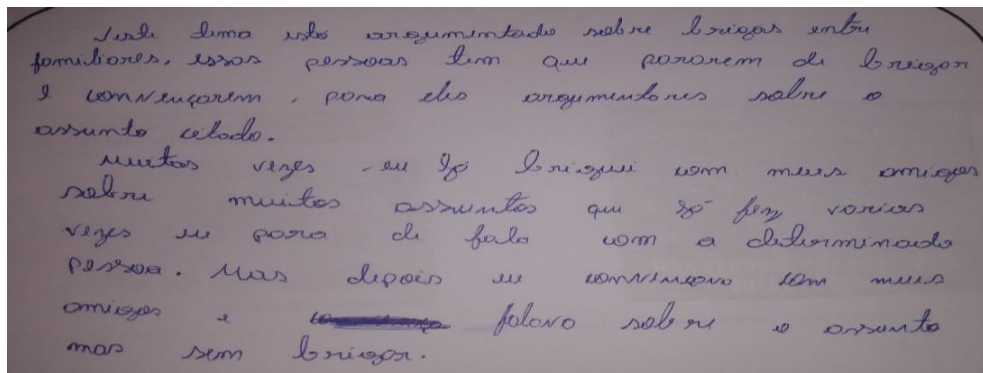 Neste tema está argumentado sobre brigas entre
familiares, essas pessoas tem que pararem de brigar
e convençarem, para eles argumentares sobre o
assunto citado.
Muitas vezes eu já briguei com meus amigos
sobre muitos assuntos que só fez varias
vezes eu para de fala com a determinado
pessoa. Mas depois eu convençava com meus
amigos e falava sobre o assunto
mas sem brigar.